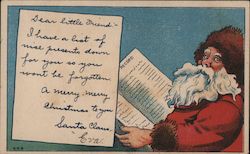 Dear little Friend:-
I have a list of
nise presents down
for you so you
wont be forgotten
A merry merry
Christmas to you
Santa Claus.
Eva